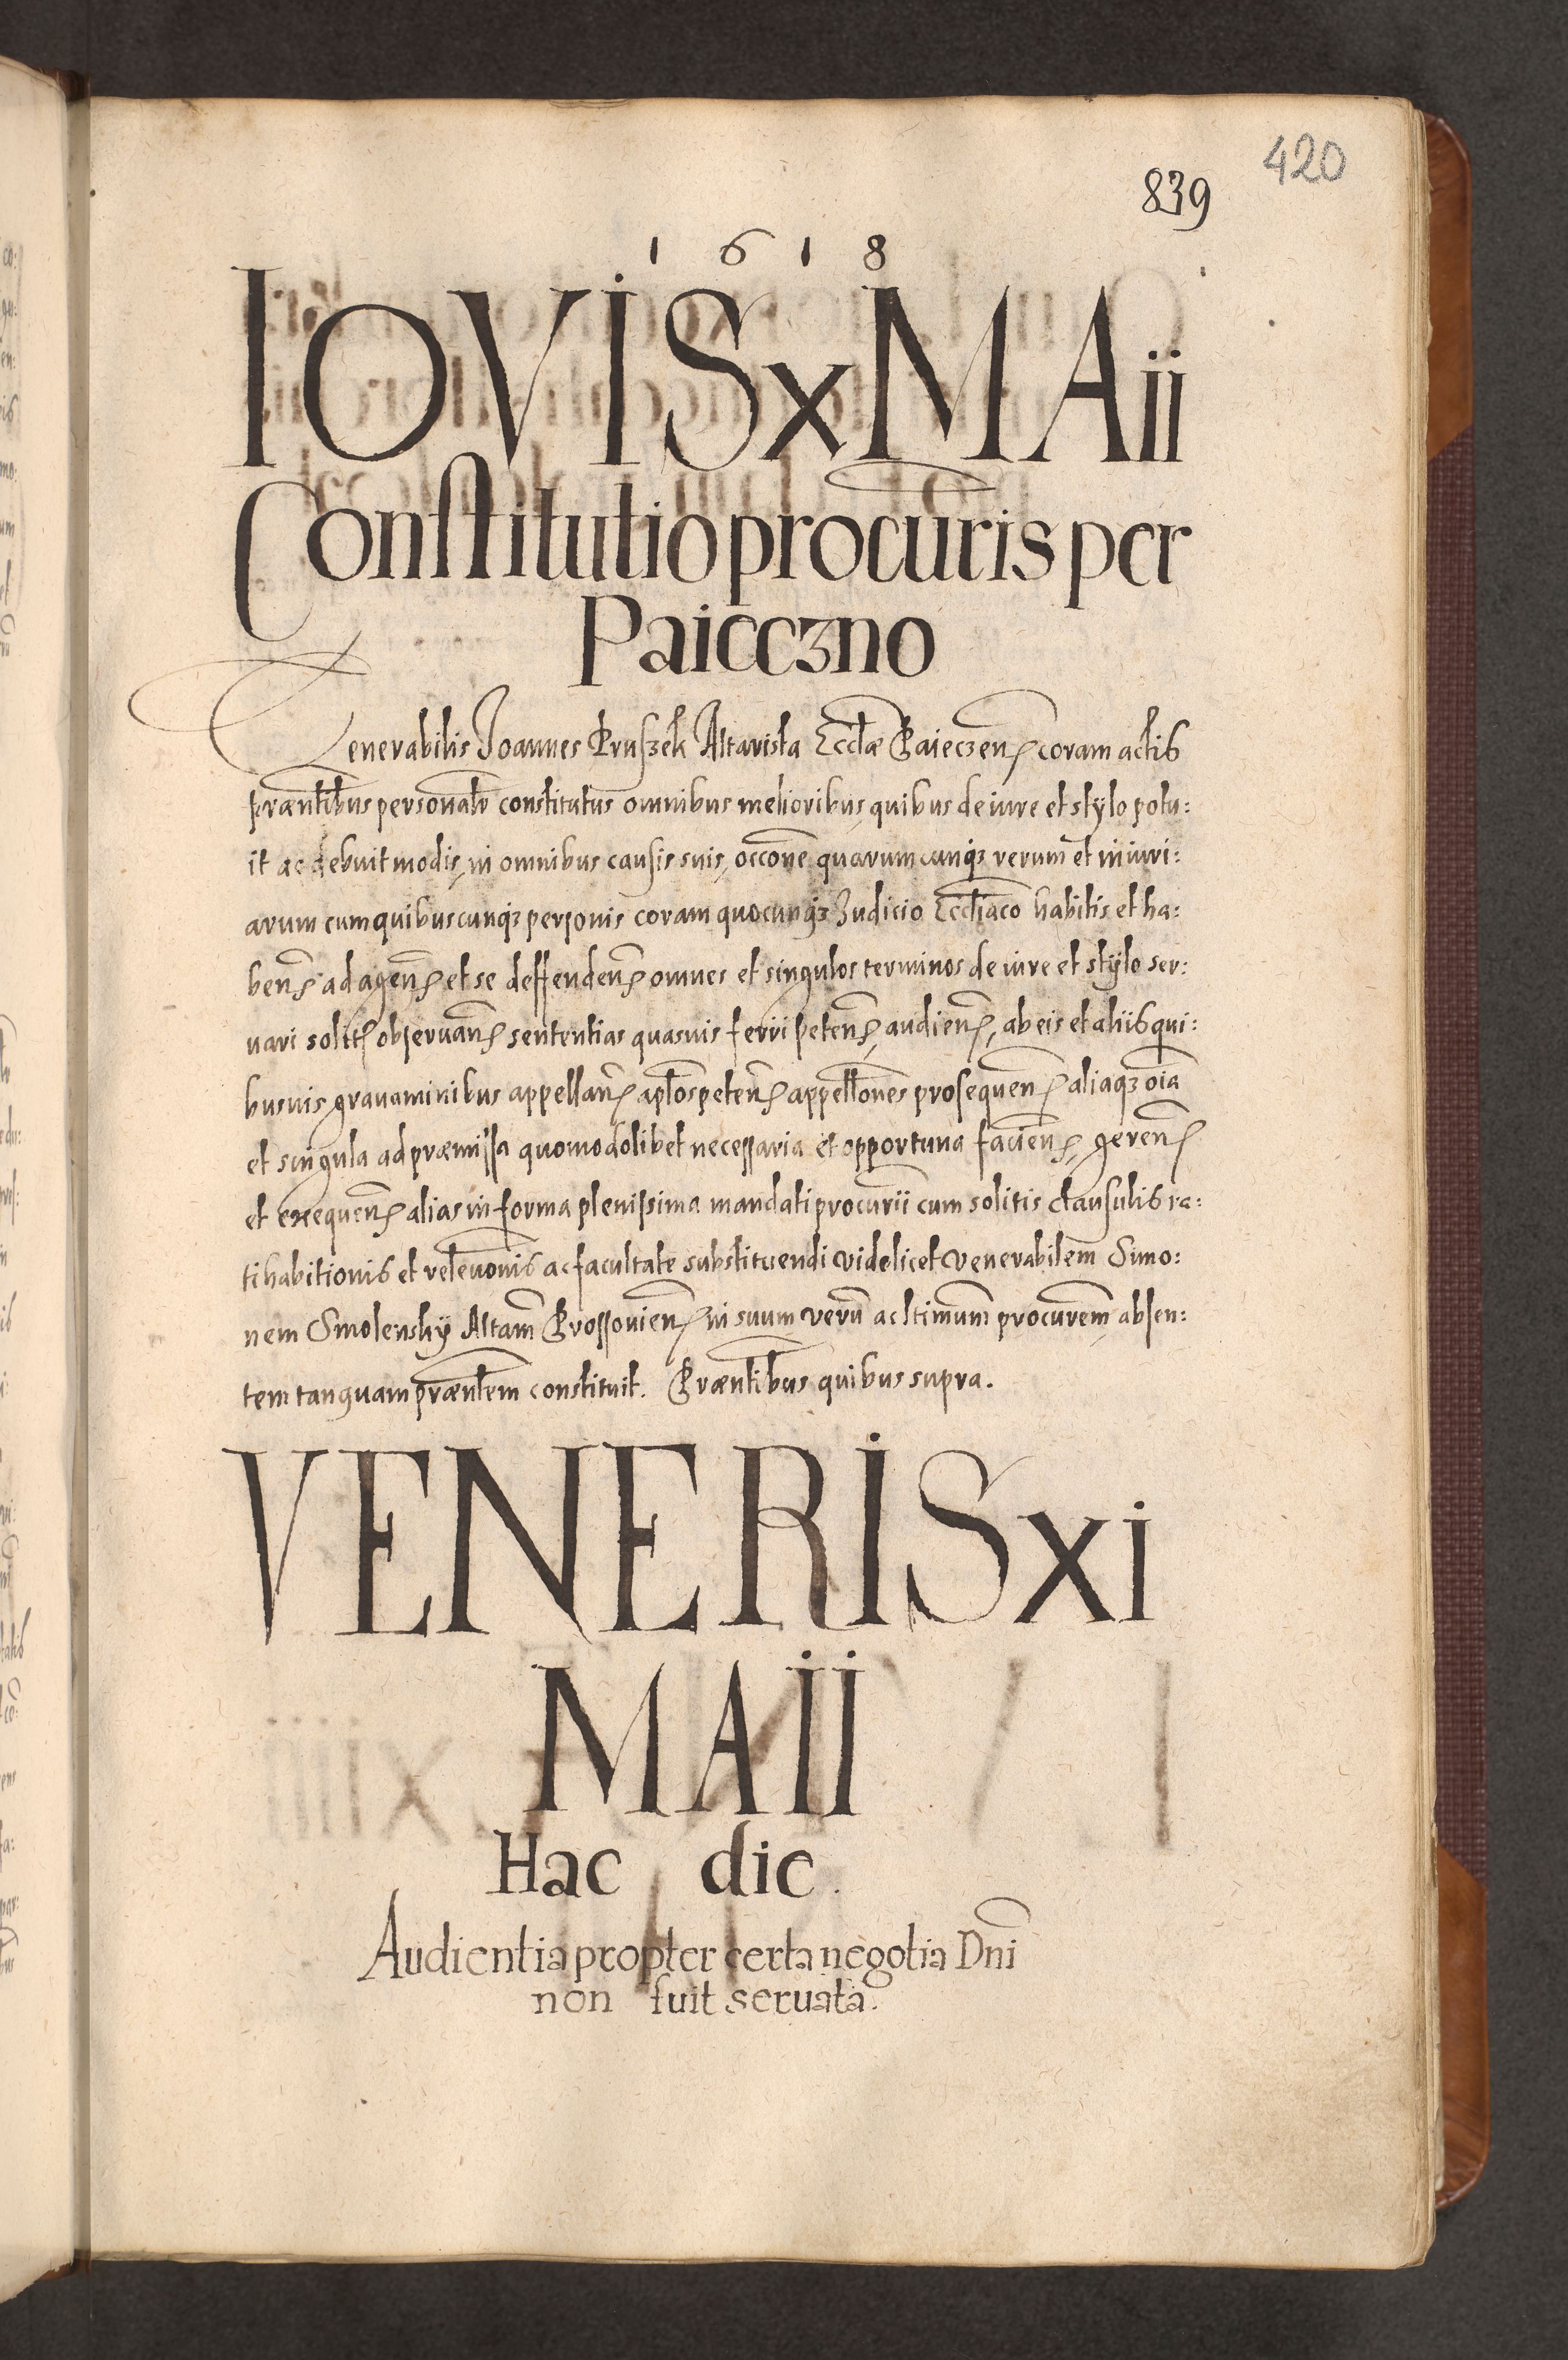 420
839
1618
IOVIS x MAii
Constitutio procuris per
Paieczno
Venerabilis Joannes Pruszek Altarista Eccłæ Paieczen coram actis
præntibus personalr constitutus omnibus melioribus quibus de iure et stylo potu:
it ac debuit modis, in omnibus causis suis, occone quarumcunqz rerum et iniuri:
arum cum quibuscunqz personis coram quocunqz Judicio Eccliaco habitis et ha:
ben ad agen et se deffenden omnes et singulos terminos de iure et stylo ser:
uari solit observan sententias quasuis ferri peten, audien, ab eis et aliis qui:
busuis gravaminibus appellan aplos peten appellones prosequen aliaqz oia
et singula ad præmissa quomodolibet necessaria et opportuna facien, geren
et exequen alias in forma plenissima mandati procurii cum solitis clausulis ra:
tihabitionis et relevonis ac facultate substituendi videlicet Venerabilem Simo:
nem Smolensky Altam Brossovien in suum verū ac ltimum procurem absen:
tem tanquam præntem constituit. Præntibus quibus supra.
VENERIS xi
MAII
Hac die.
Audientia propter certa negotia Dni
non fuit seruata.